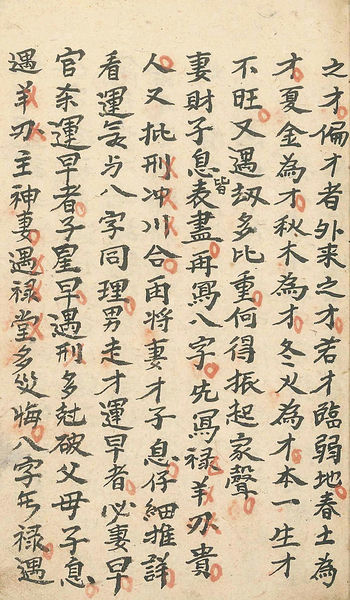 之才偏才者外来之才若才臨弱地春土為
才夏金為才秋木為才冬火為才本一生才
不旺又遇劫多比重何得振起家聲
妻財子息表皆盡再寫八字先寫祿羊刃貴
人又批刑冲川合再將妻才子息仔細推詳
看運氣与八字同理男走才運早者必妻早
官杀運早者子星早遇刑多尅破父母子息
遇羊刃主神妻遇祿堂多災悔八字有祿遇